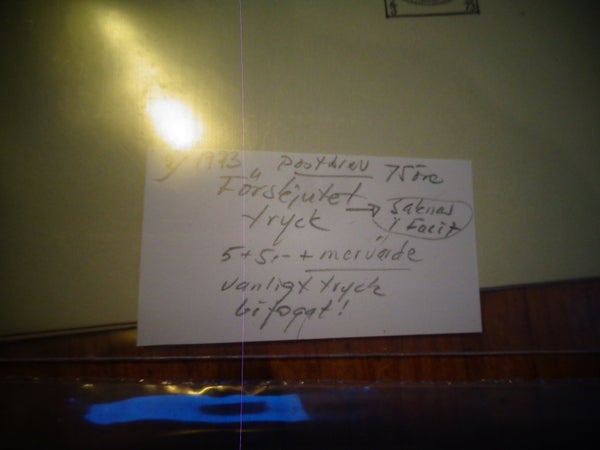 1973 Postbrev 75 öre
Förskjutet
tryck → Saknas
i Facit
5+5,- + mervärde
vanligt tryck
bifogat!